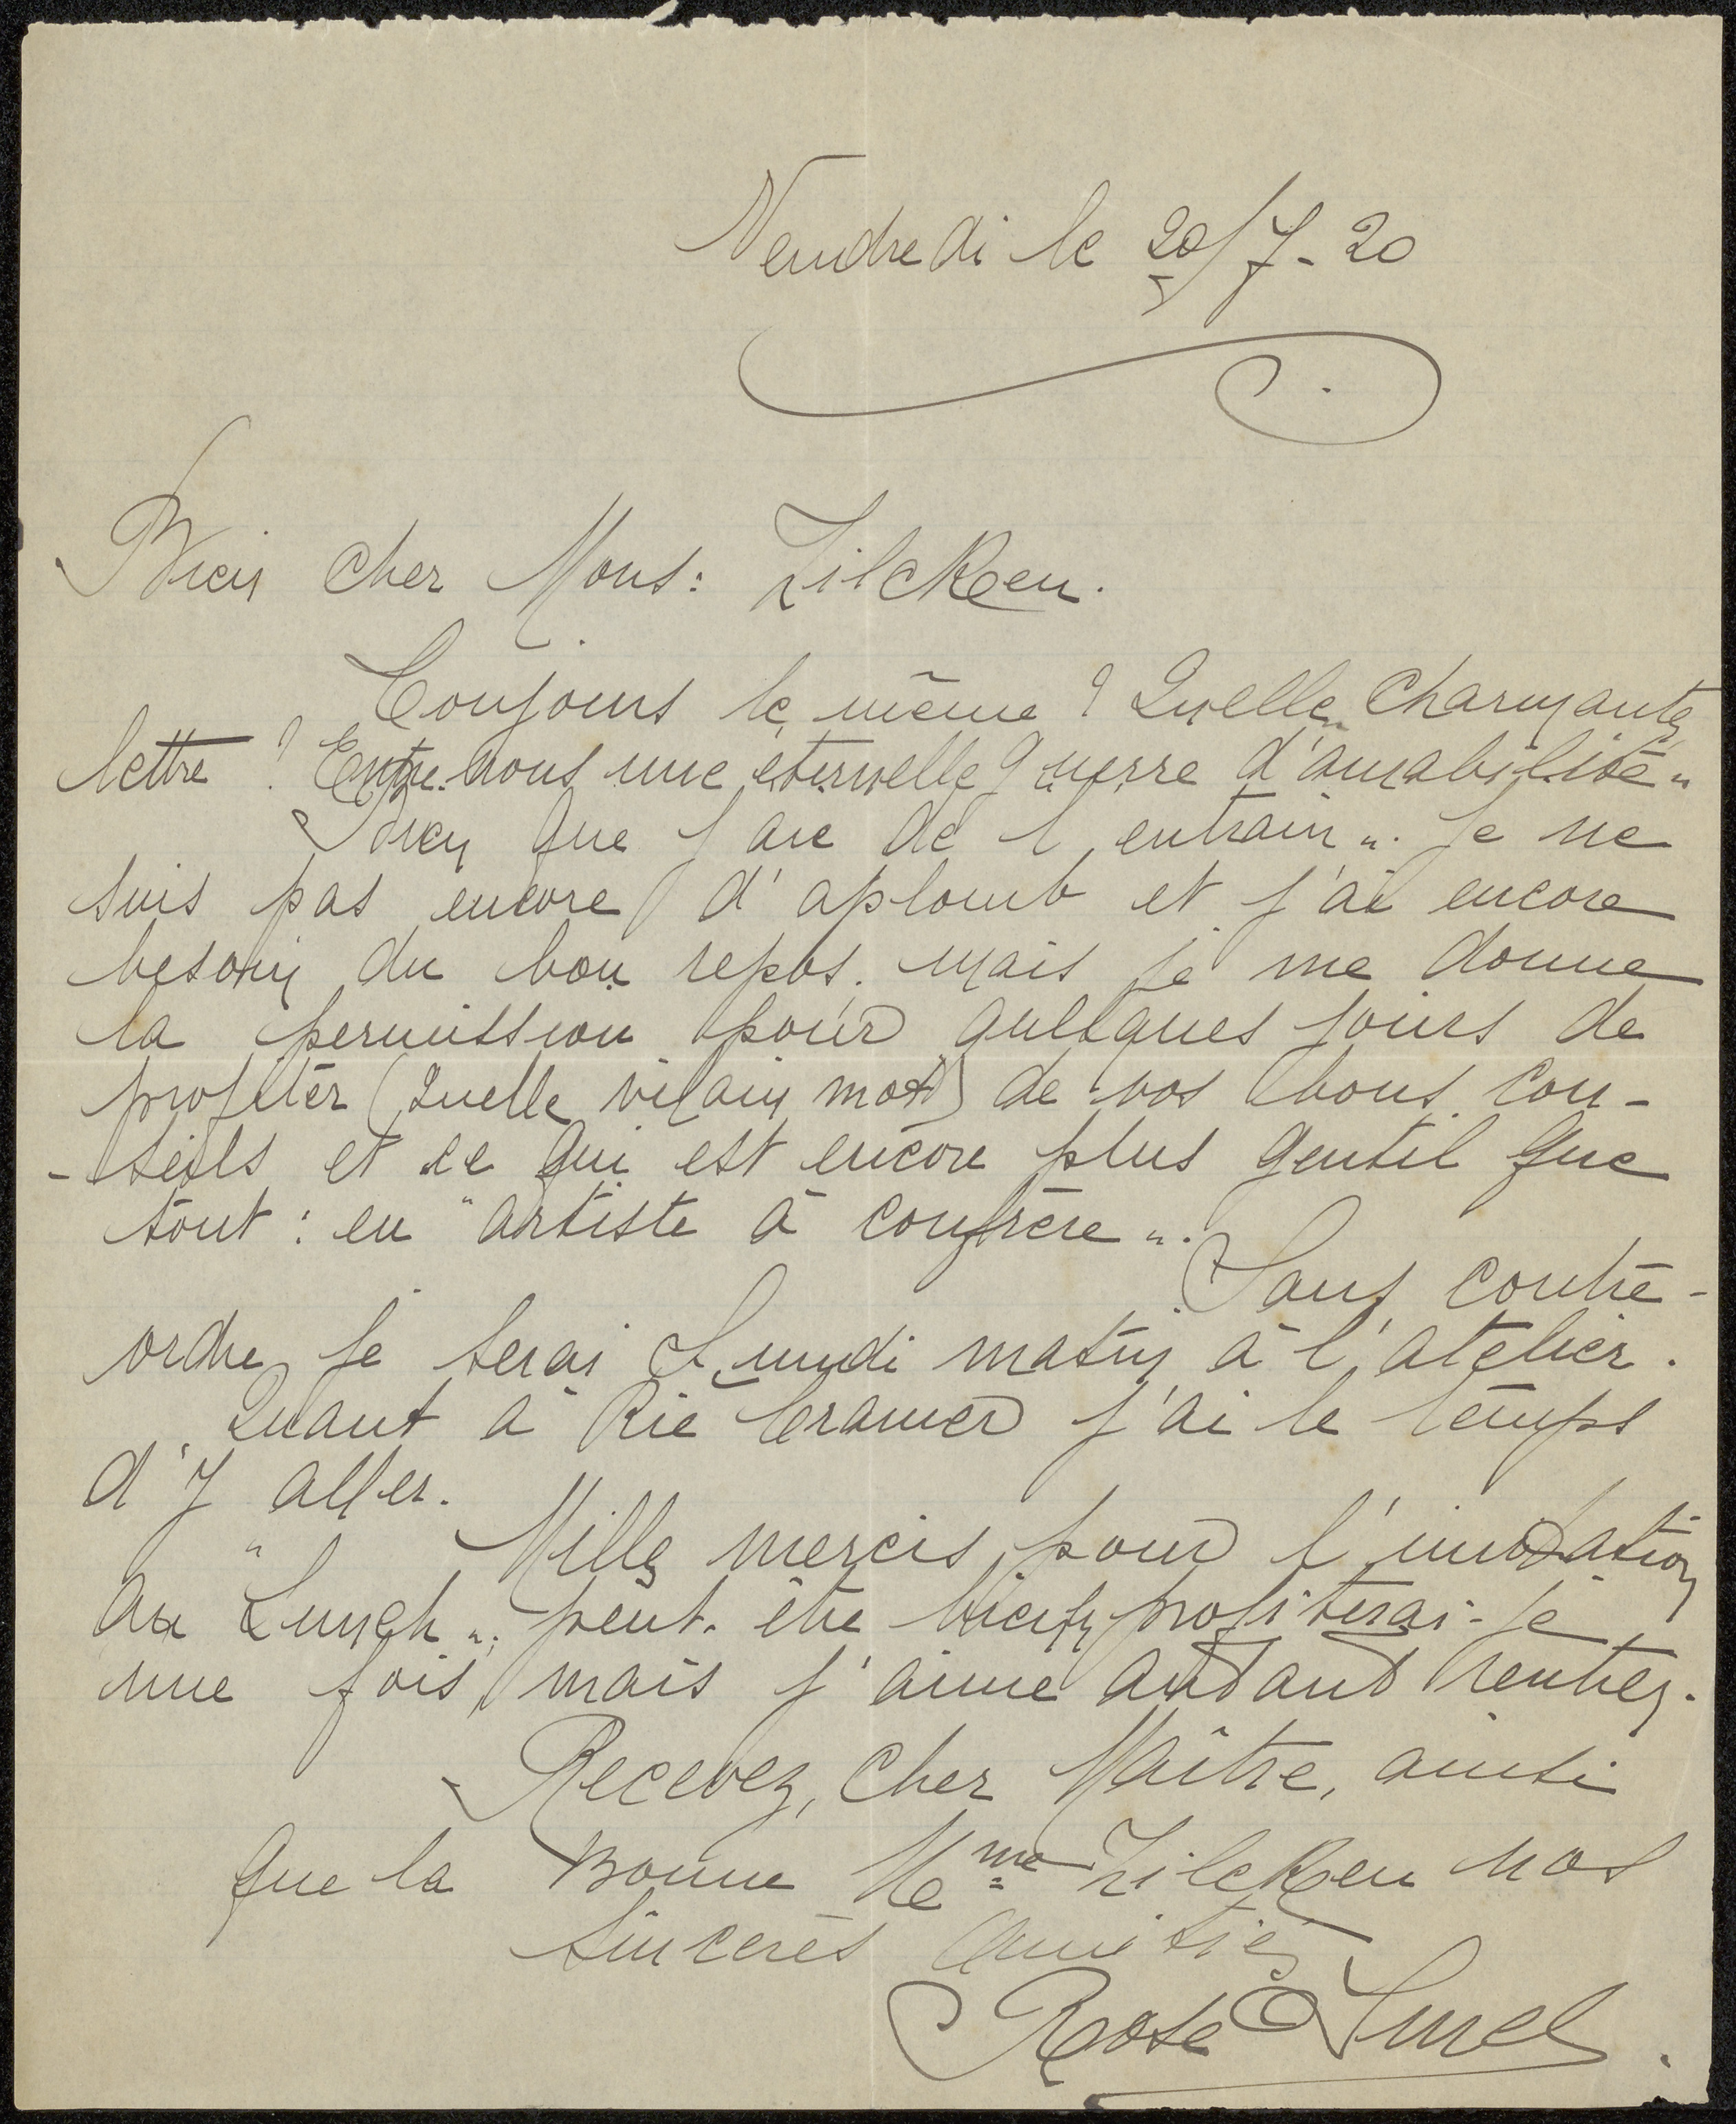 Vendredi le 20/7-20
Bien cher Mons: Zilcken.
Toujours le même ! Quelle charmante
lettre ! Entre nous une éternelle guerre d'amabilité„
Bien que j'aie de l'entrain„. Je ne
suis pas encore d'aplomb et j'ai encore
besoin du bon repos. Mais je me donne
la permission pour quelques jours de
profiter (Quelle vilain mot) de vos bons con-
-seils et ce qui est encore plus gentil que
tout : en "artiste à confrère„.
Sans contre-
ordre je serai Lundi matin à l'atelier.
Quant à Rie Cramer j'ai le temps
d'y aller.
Mille mercis pour l'invitation
au "Lunch„. peut-être bien profiterai-je
une fois, mais j'aime autant rentrer.
Recevez, cher Maître, ainsi
que la Bonne Mme Zilcken nos
sincères amitiés
Rose